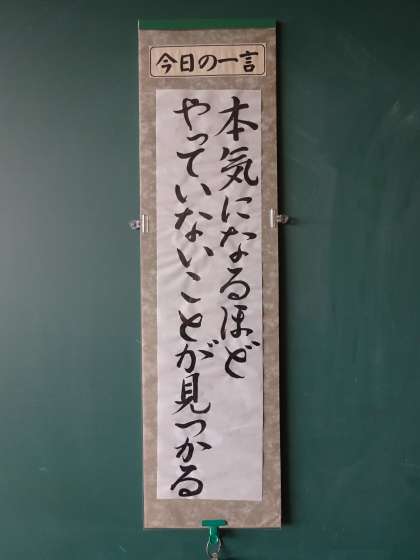 今日の一言
本気になるほど
やっていないことが見つかる